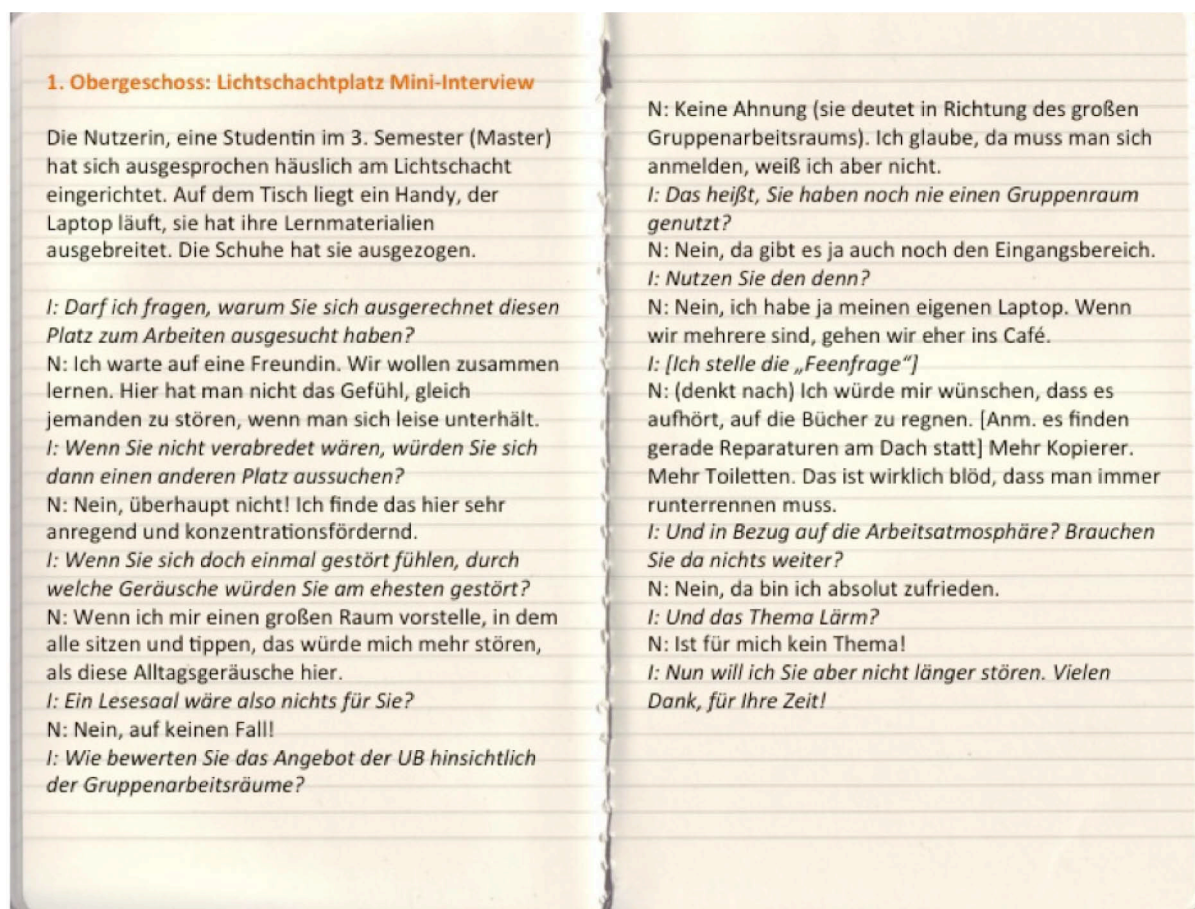 1. Obergeschoss: Lichtschachtplatz Mini-Interview
Die Nutzerin, eine Studentin im 3. Semester (Master)
hat sich ausgesprochen häuslich am Lichtschacht
eingerichtet. Auf dem Tisch liegt ein Handy, der
Laptop läuft, sie hat ihre Lernmaterialien
ausgebreitet. Die Schuhe hat sie ausgezogen.
I: Darf ich fragen, warum Sie sich ausgerechnet diesen
Platz zum Arbeiten ausgesucht haben?
N: Ich warte auf eine Freundin. Wir wollen zusammen
lernen. Hier hat man nicht das Gefühl, gleich
jemanden zu stören, wenn man sich leise unterhält.
I: Wenn Sie nicht verabredet wären, würden Sie sich
dann einen anderen Platz aussuchen?
N: Nein, überhaupt nicht! Ich finde das hier sehr
anregend und konzentrationsfördernd.
I: Wenn Sie sich doch einmal gestört fühlen, durch
welche Geräusche würden Sie am ehesten gestört?
N: Wenn ich mir einen großen Raum vorstelle, in dem
alle sitzen und tippen, das würde mich mehr stören,
als diese Alltagsgeräusche hier.
I: Ein Lesesaal wäre also nichts für Sie?
N: Nein, auf keinen Fall!
I: Wie bewerten Sie das Angebot der UB hinsichtlich
der Gruppenarbeitsräume?
N: Keine Ahnung (sie deutet in Richtung des großen
Gruppenarbeitsraums). Ich glaube, da muss man sich
anmelden, weiß ich aber nicht.
I: Das heißt, Sie haben noch nie einen Gruppenraum
genutzt?
N: Nein, da gibt es ja auch noch den Eingangsbereich.
I: Nutzen Sie den denn?
N: Nein, ich habe ja meinen eigenen Laptop. Wenn
wir mehrere sind, gehen wir eher ins Café.
I: [Ich stelle die „Feenfrage“]
N: (denkt nach) Ich würde mir wünschen, dass es
aufhört, auf die Bücher zu regnen. [Anm. es finden
gerade Reparaturen am Dach statt] Mehr Kopierer.
Mehr Toiletten. Das ist wirklich blöd, dass man immer
runterrennen muss.
I: Und in Bezug auf die Arbeitsatmosphäre? Brauchen
Sie da nichts weiter?
N: Nein, da bin ich absolut zufrieden.
I: Und das Thema Lärm?
N: Ist für mich kein Thema!
I: Nun will ich Sie aber nicht länger stören. Vielen
Dank, für Ihre Zeit!